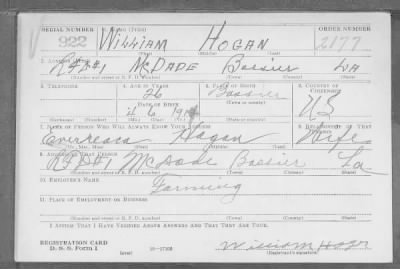 SERIAL NUMBER 1. NAME (Print) ORDER NUMBER
922 WILLIAM HOGAN 2177
(First) (Middle) (Last)
2. ADDRESS (Print)
RFD#1 McDADE Bossier LA
(Number and street or R. F. D. number) (Town) (County) (State)
3. TELEPHONE 4. AGE IN YEARS 5. PLACE OF BIRTH 6. COUNTRY OF CITIZENSHIP
26 Bossier
DATE OF BIRTH (Town or county)
4 6 1914 US
(Mo.) (Day) (Yr.) (State or country)
7. NAME OF PERSON WHO WILL ALWAYS KNOW YOUR ADDRESS 8. RELATIONSHIP OF THAT PERSON
Hogan Wife
(Mr., Mrs., Miss) (First) (Middle) (Last)
9. ADDRESS OF THAT PERSON
RFD#1 McDade Bossier La
(Number and street or R. F. D. number) (Town) (County) (State)
10. EMPLOYER'S NAME
Farming
11. PLACE OF EMPLOYMENT OR BUSINESS
(Number and street or R. F. D. number) (Town) (County) (State)
I AFFIRM THAT I HAVE VERIFIED ABOVE ANSWERS AND THAT THEY ARE TRUE.
REGISTRATION CARD
D. S. S. Form 1 (over) William Hogan
(Registrant's signature)